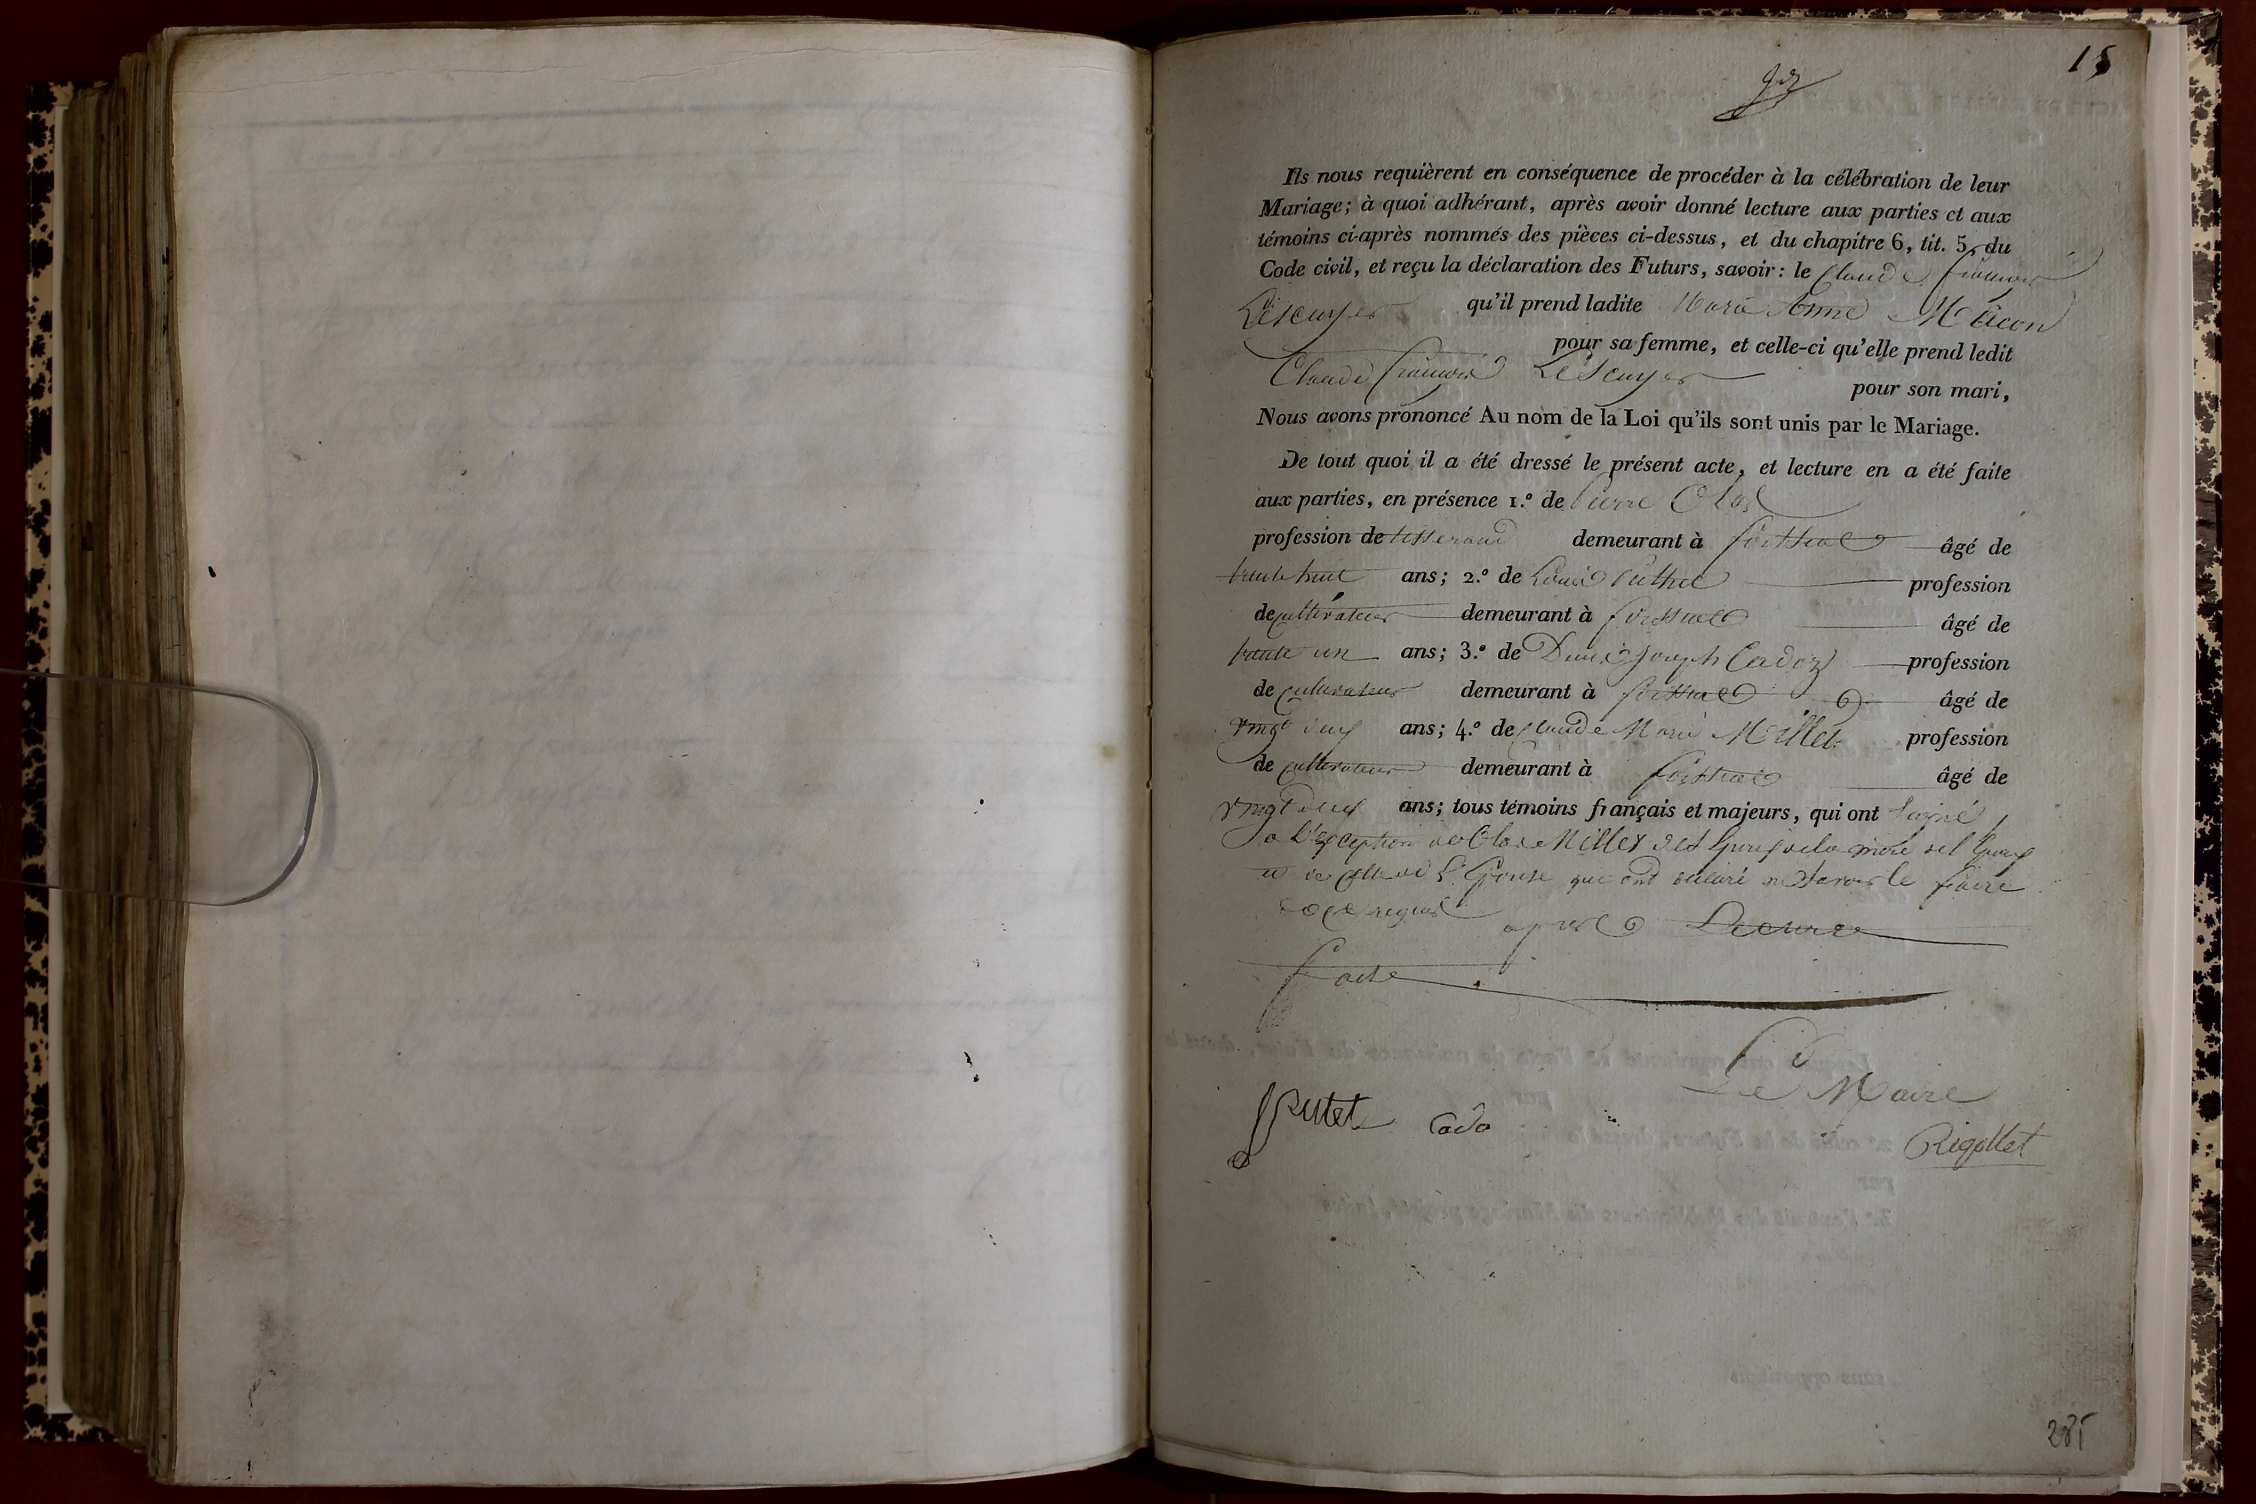 15
Ils nous requièrent en conséquence de procéder à la célébration de leur
Mariage; à quoi adhérant, après avoir donné lecture aux parties et aux
témoins ci-après nommés des pièces ci-dessus, et du chapitre 6, tit. 5, du
Code civil, et reçu la déclaration des Futurs, savoir: le Claude François
Lescuyer qu'il prend ladite Marie Anne Mâcon
pour sa femme, et celle-ci qu'elle prend ledit
Claude François Lescuyer pour son mari,
Nous avons prononcé Au nom de la Loi qu'ils sont unis par le Mariage.
De tout quoi il a été dressé le présent acte, et lecture en a été faite
aux parties, en présence 1.º de Pierre Clos
profession de tisserand demeurant à âgé de
trente huit ans; 2.º de Louis profession
de cultivateur demeurant à âgé de
trente un ans; 3.º de Denis Joseph Cadoz profession
de cultivateur demeurant à âgé de
vingt deux ans; 4.º de Claude Marie Millet profession
de cultivateur demeurant à âgé de
vingt deux ans; tous témoins français et majeurs, qui ont signé
a L'exception de Clos e Millet de la mère
de L'Epouse qui ont déclaré ne savoir le faire
requis après Lecture
faite
Le Maire
Putet Cado Rigollet
285